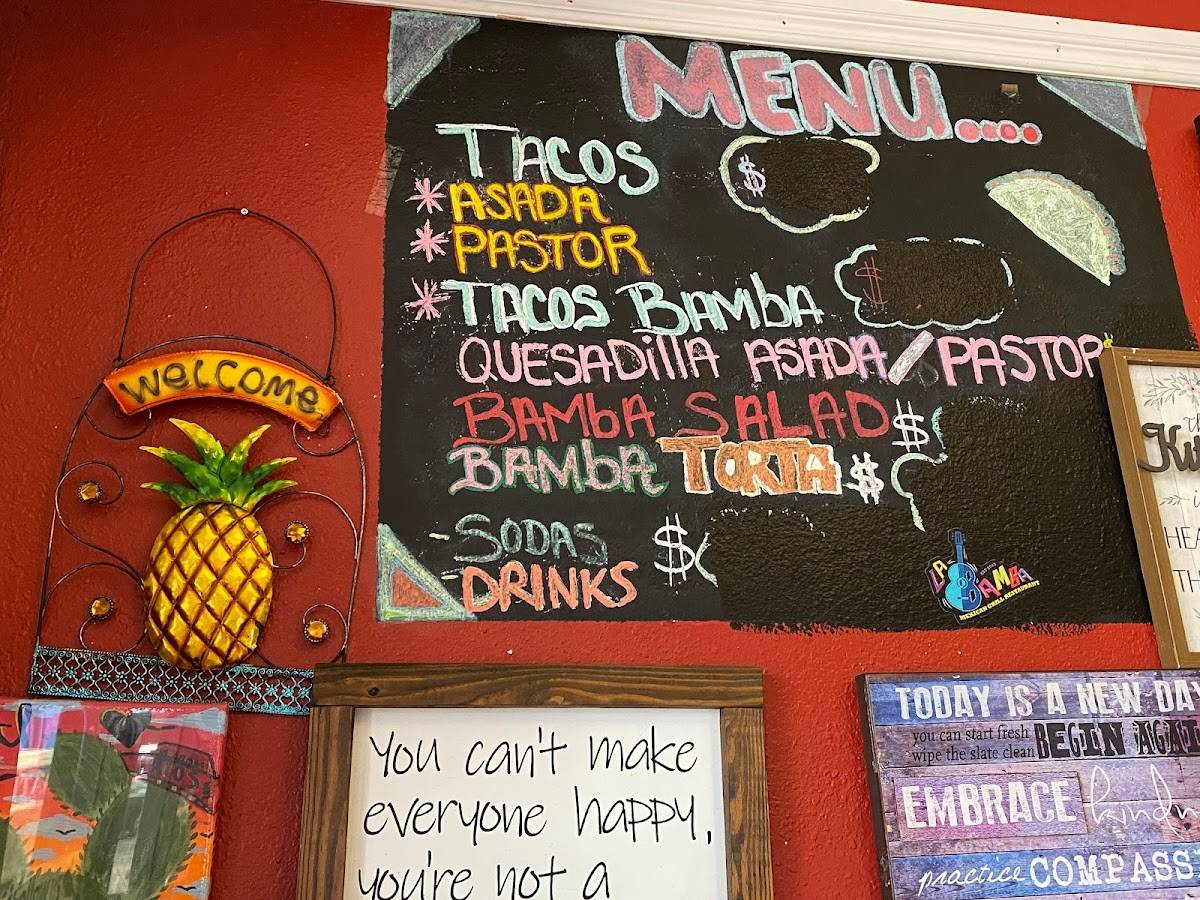 MENU....
TACOS $
* ASADA
* PASTOR
* TACOS BAMBA $
QUESADILLA ASADA/PASTOR
BAMBA SALAD $
BAMBA TORTA $
- SODAS $
- DRINKS
LA BAMBA
MEXICAN GRILL RESTAURANT
WELCOME
You can't make
everyone happy,
you're not a
TODAY IS A NEW DAY
you can start fresh
wipe the slate clean
BEGIN AGAIN
EMBRACE
practice COMPASS
TACOS
HEA